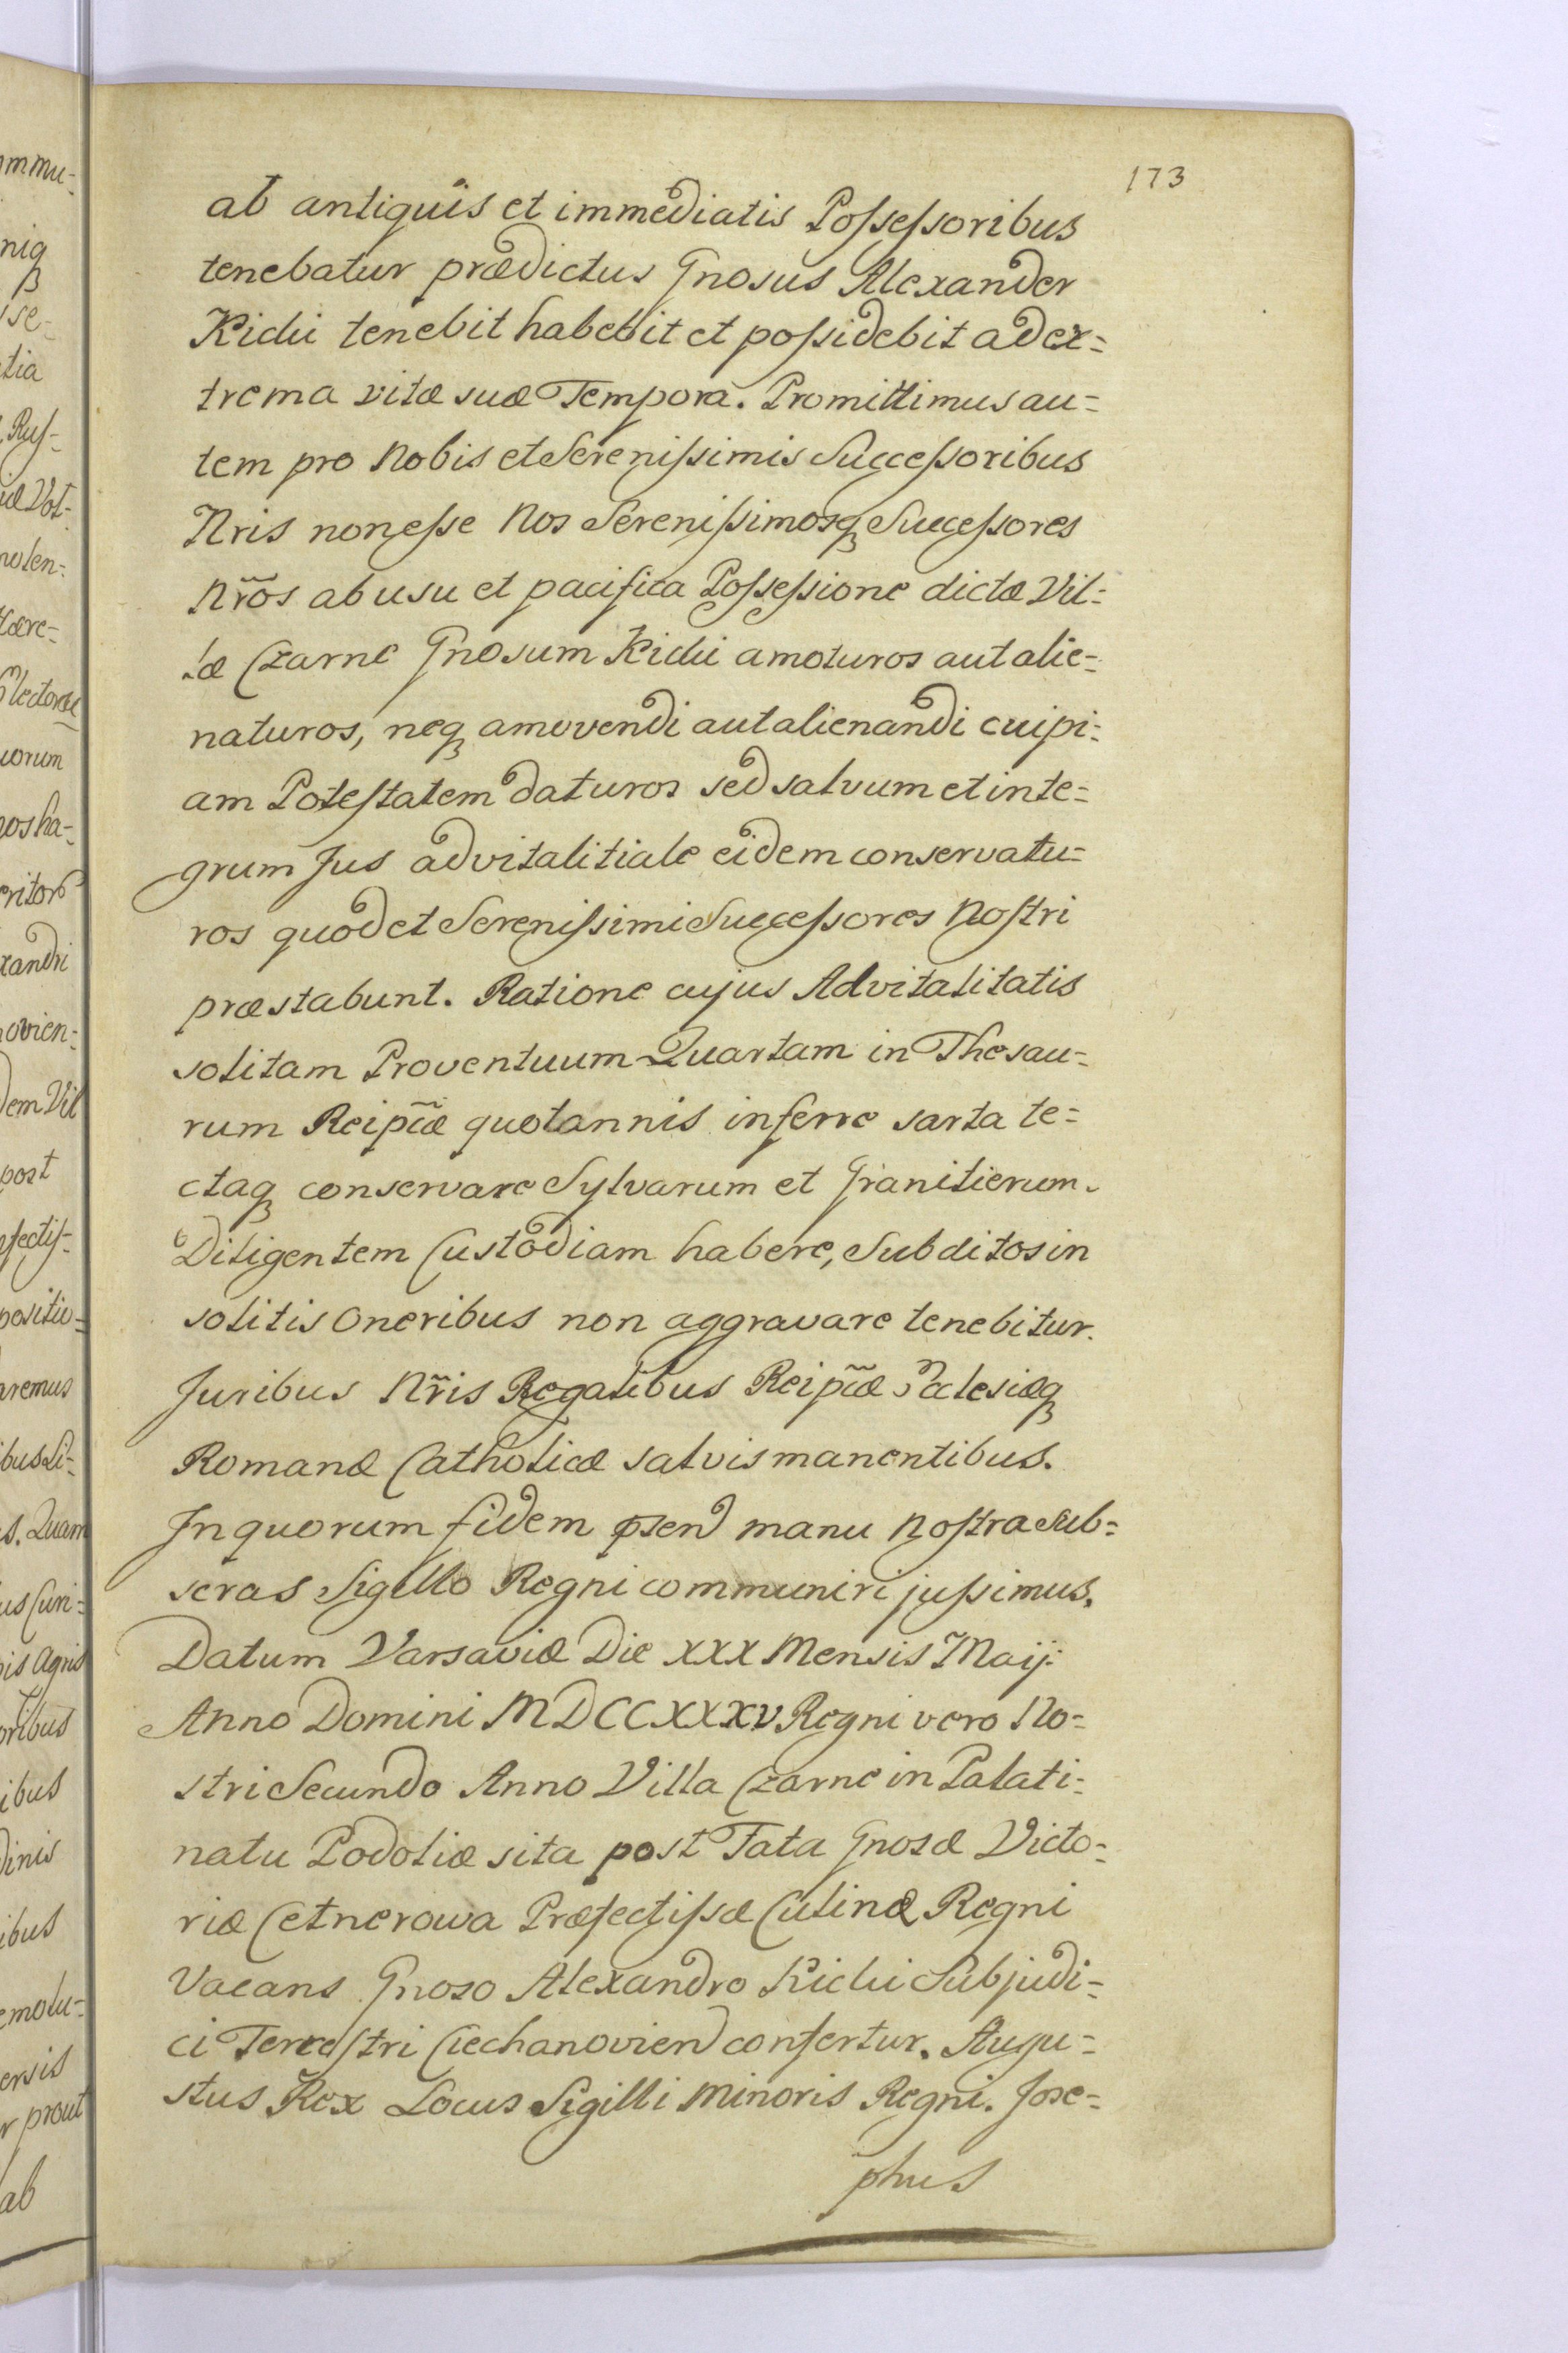 173
ab antiquis et immediatis Possessoribus
tenebatur prædictus Gnosus Alexander
Kicki tenebit habebit et possidebit ad ex=
trema vitæ suæ Tempora. Promittimus au=
tem pro Nobis et Serenissimis Successoribus
Nris non esse Nos Serenissimosq Successores
Nr̃os ab usu et pacifica Possessione dictæ Vil=
læ Czarne Gnosum Kicki amoturos aut alie=
naturos, neq amovendi aut alienandi cuipi=
am Potestatem daturos sed salvum et inte=
grum Jus advitalitiale eidem conservatu=
ros quod et Serenissimi Successores Nostri
præstabunt. Ratione cujus Advitalitatis
solitam Proventuum Quartam in Thesau=
rum Reipc̃æ quotannis inferre sarta te=
ctaq conservare Sylvarum et Granitierum
Diligentem Custodiam habere, Subditos in
solitis Oneribus non aggravare tenebitur.
Juribus Nr̃is Regalibus Reipc̃æ Ecclesiæq
Romanæ Catholicæ salvis manentibus.
In quorum fidem psen manu Nostra sub=
scras Sigillo Regni communiri jussimus.
Datum Varsaviæ Die XXX Mensis Maij
Anno Domini MDCCXXXV Regni vero No=
stri Secundo Anno Villa Czarne in Palati=
natu Podoliæ sita post Fata Gnosæ Victo=
riæ Cetnerowa Præfectissæ Culinæ Regni
Vacans Gnoso Alexandro Kicki Subjudi=
ci Terrestri Ciechanovien confertur. Augu=
stus Rex Locus Sigilli Minoris Regni. Jose=
phus